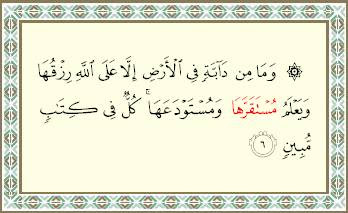 ۞ وَمَا مِن دَآبَّةٖ فِي ٱلۡأَرۡضِ إِلَّا عَلَى ٱللَّهِ رِزۡقُهَا
وَيَعۡلَمُ مُسۡتَقَرَّهَا وَمُسۡتَوۡدَعَهَاۚ كُلّٞ فِي كِتَٰبٖ
مُّبِينٖ ٦